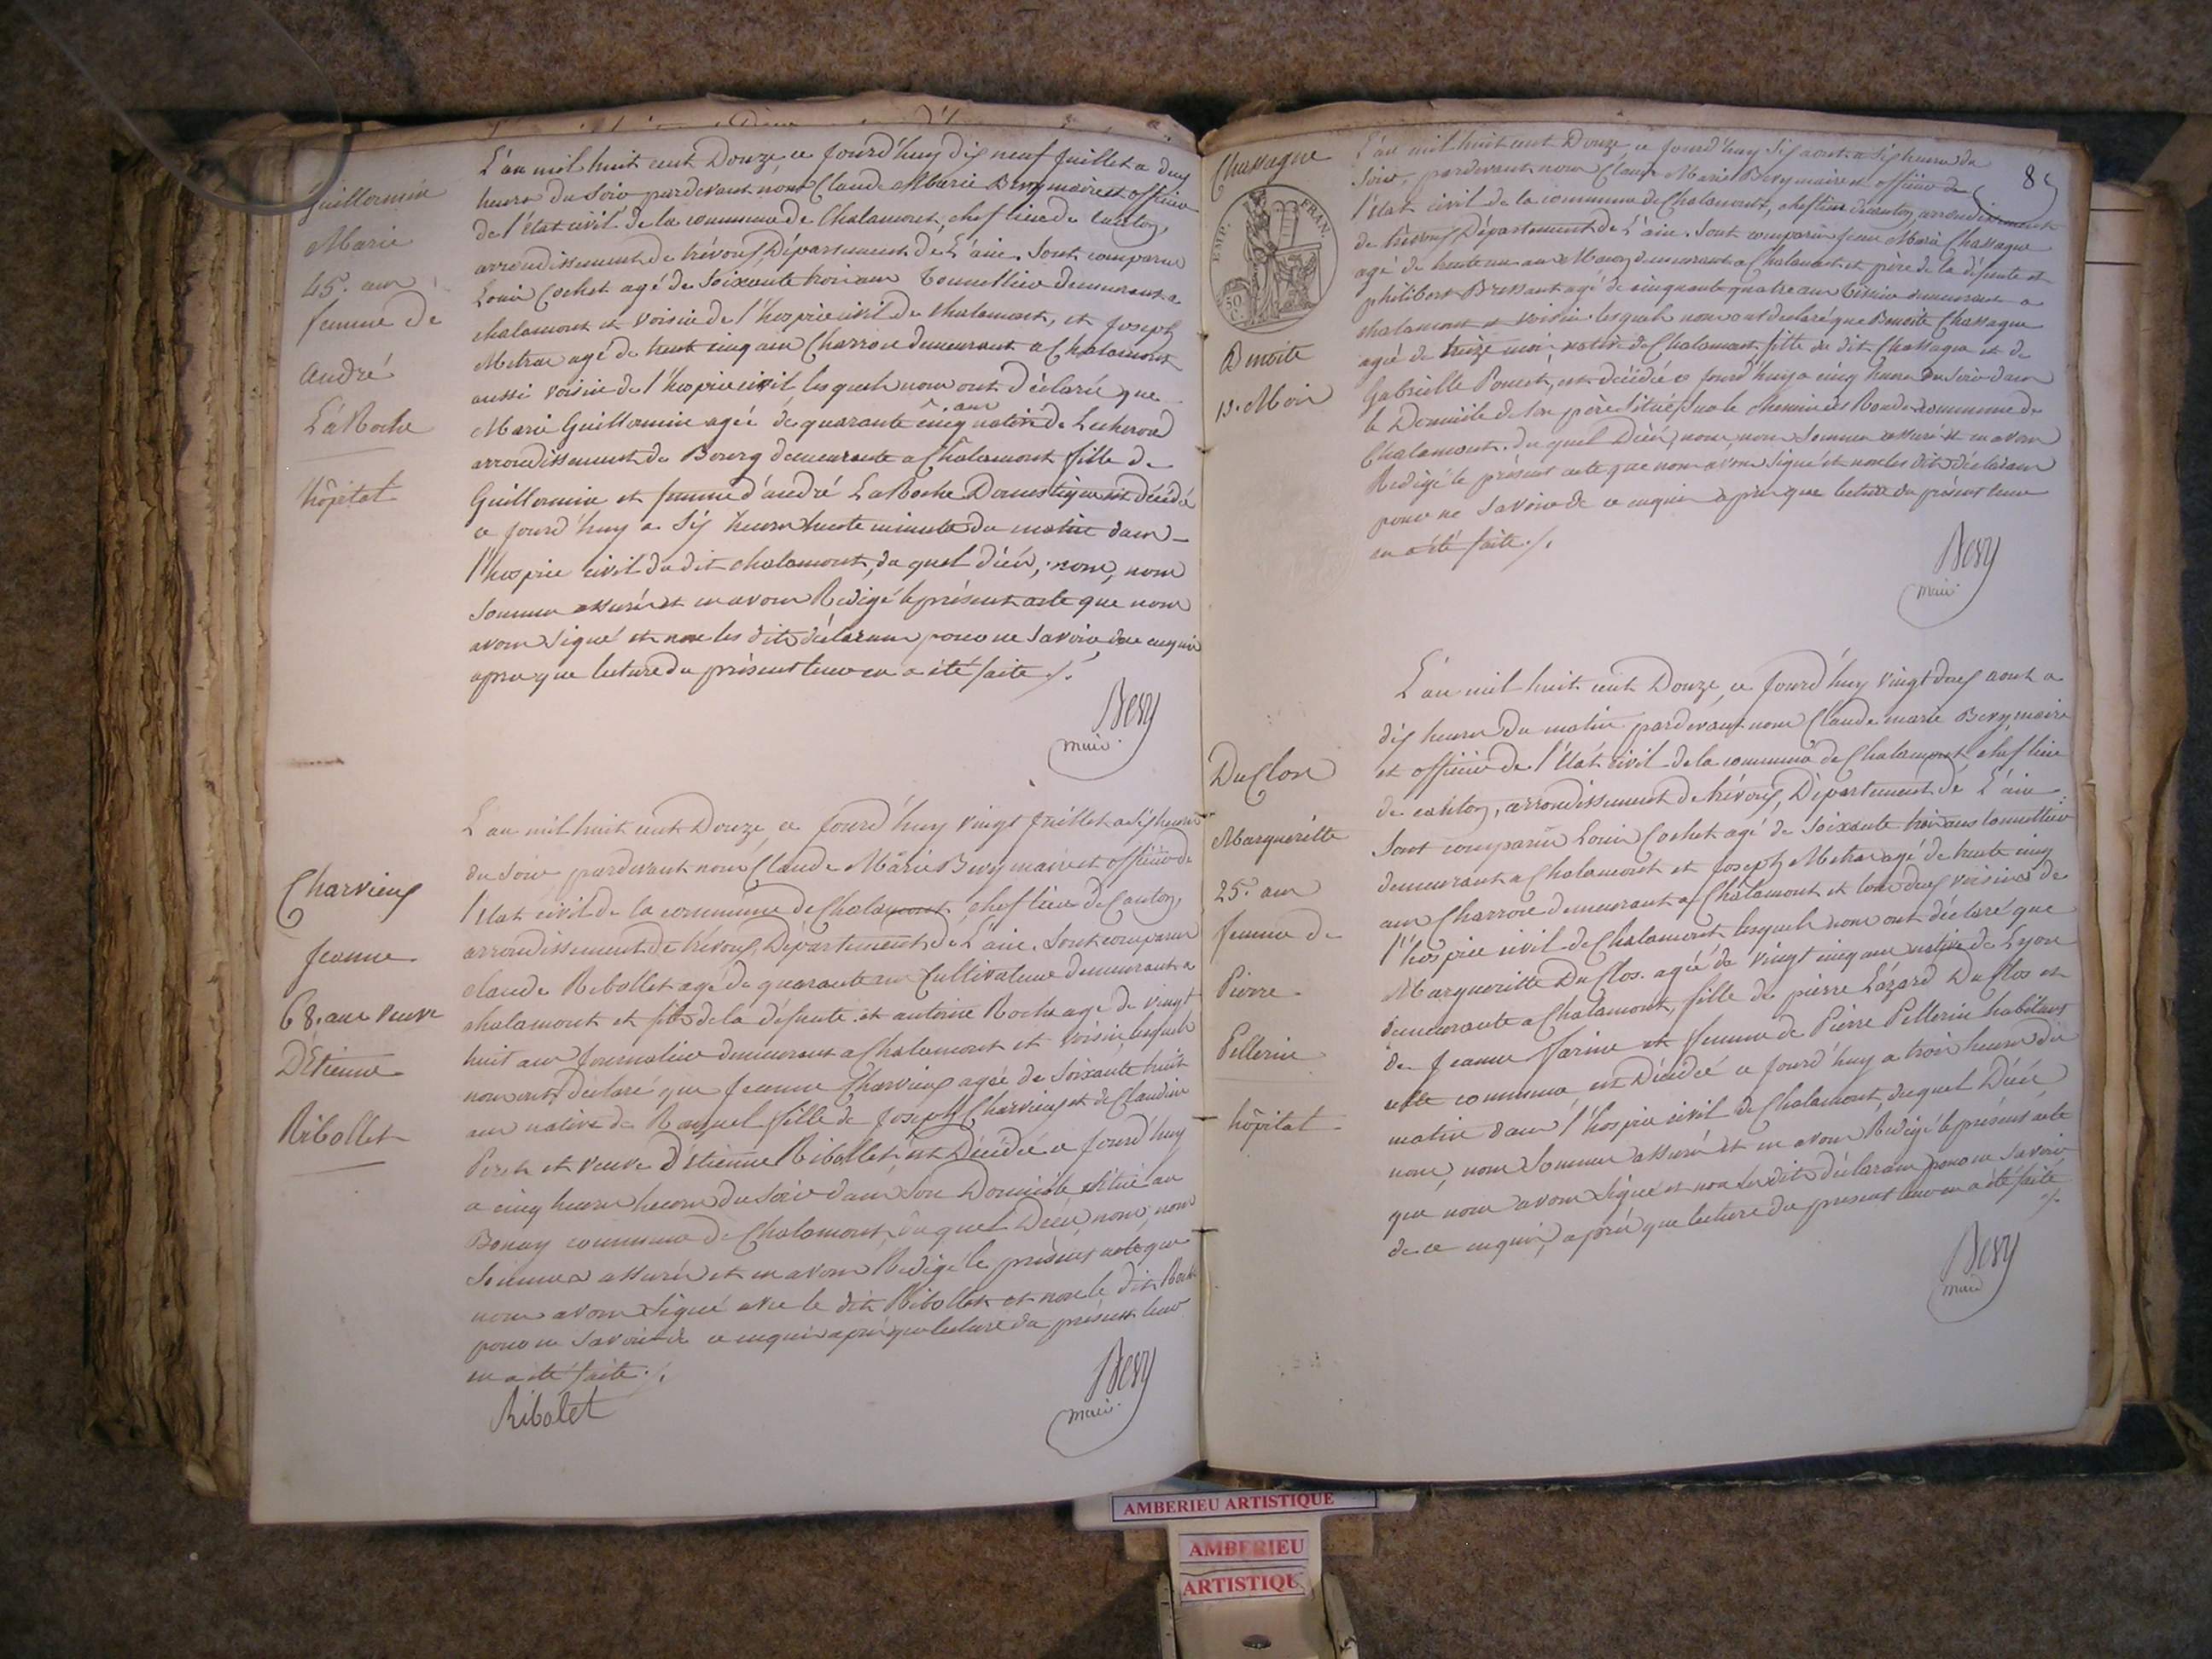 Guillermin
Marie
45. ans
femme de
André
LaRoche
hôpital
L'an mil huit cent Douze, ce jourd'huy dix neuf juillet a deux
heures du soir pardevant nous Claude Marie Bevy maire et officier
de l'état civil de la commune de Chalamont, chef lieu de canton,
arrondissement de trévoux, Département de L'ain. Sont comparus
Louis Cochet agé de soixante trois ans Tonnellier demeurant a
chalamont et voisin de l'hospice civil de chalamont, et Joseph
Metras agé de trent cinq ans Charron demeurant a Chalamont
aussi voisin de l'hospice civil lesquels nous ont déclaré que
Marie Guillermin agée de quarante cinq ans native de Lecheroud
arrondissement de Bourg demeurante a Chalamont fille de
Guillermin et femme d'andré LaRoche Domestique est décédé
ce jourd'huy a six heures trente minutes du matin dans
l'hospice civil du dit chalamont, du quel décés, nous, nous
sommes assurés et en avons Redigé le présent acte que nous
avons signé et non les dits déclarans pour ne savoir de ce enquis
apres que lecture du présent leur en a été faite ./.
Bevy
maire.
Charvieux
Jeanne
68. ans veuve
D'Etienne
Ribollet
L'an mil huit cent Douze, ce jourd'huy vingt juillet a six heures
du soir pardevant nous Claude Marie Bevy maire et officier de
l'état civil de la commune de Chalamont, chef lieu de Canton,
arrondissement de trévoux, Département de L'ain. Sont comparus
claude Ribollet agé de quarante ans Cultivateur demeurant a
chalamont et fils de la défunte et antoine Roche agé de vingt
huit ans Journalier demeurant a Chalamont et voisin, lesquels
nous ont déclaré que Jeanne Charvieux agée de soixante huit
ans native de fille de Joseph Charvieux et de Claudine
et veuve D'etienne Ribollet, est Décédée ce jourd'huy
a cinq heures du soir dans son Domicile situé au
Bonay commune de Chalamont, du quel Décés, nous, nous
sommes assurés et en avons Redigé le présent acte que
nous avons signé avec le dit Ribollet et non le dit Roche
pour ne savoir de ce enquis apres que lecture du présent leur
en a été faite ./.
Ribolet
Bevy
maire.
Chassagne
EMP. FRAN.
50 C.
Benoite
13. Mois
85
L'an mil huit cent Douze ce jourd'huy six aout a six heures du
soir, pardevant nous Claude Marie Bevy maire et officier de
l'état civil de la commune de Chalamont, chef lieu de canton, arrondissement
de trévoux, Département de L'ain. Sont comparus Jean Marie Chassagne
agé de trente un ans Maçon demeurant a Chalamont et père de la défunte et
philibert Bressant agé de cinquante quatre ans tissier demeurant a
chalamont et voisin. lesquels nous ont declaré que Benoite Chassagne
agée de treize mois, native de Chalamont fille du dit Chassagne et de
Gabrielle Poncet, est décédée ce jourd'huy a cinq heures du soir dans
le Domicile de son père situé sur le chemin des Rondes commune de
Chalamont. du quel Décés, nous, nous sommes assuré et en avons
Redigé le présent acte que nous avons signé et non les dits déclarans
pour ne savoir de ce enquis apres que lecture du présent leur
en a été faite ./.
Bevy
maire.
DuClos
Margueritte
25. ans
femme de
Pierre
Pellerin
hôpital
L'an mil huit cent Douze, ce jourd'huy vingt deux aout a
dix heures du matin pardevant nous Claude marie Bevy, maire
et officier de l'état civil de la commune de Chalamont, chef lieu
de canton, arrondissement de trévoux, Département de L'ain.
Sont comparus Louis Cochet agé de soixante trois ans tonnellier
demeurant a Chalamont et Joseph Metras agé de trente cinq
ans Charron demeurant a Chalamont et tous deux voisins de
l'hospice civil de Chalamont lesquels nous ont déclaré que
Margueritte DuClos agée de vingt cinq ans native de Lyon
demeurante a Chalamont, fille de pierre Lézard DuClos et
de Jeanne farine et femme de Pierre Pellerin habitans
cette commune, est Décédée ce jourd'huy a trois heures du
matin dans l'hospice civil de Chalamont, du quel Décés
nous, nous sommes assurés et en avons Redigé le présent acte
que nous avons signé et non les dits déclarans pour ne savoir
de ce enquis, après que lecture du present leur en a été faite
./.
Bevy
maire
AMBERIEU ARTISTIQUE
AMBERIEU
ARTISTIQUE